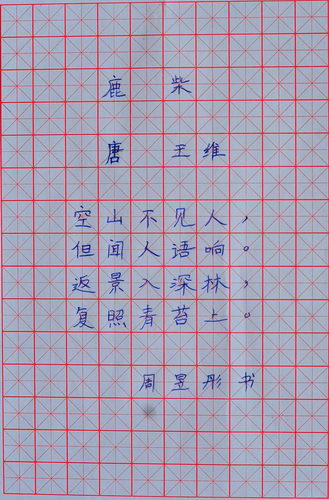 鹿柴
唐 王维
空山不见人，
但闻人语响。
返景入深林，
复照青苔上。
周昱彤书